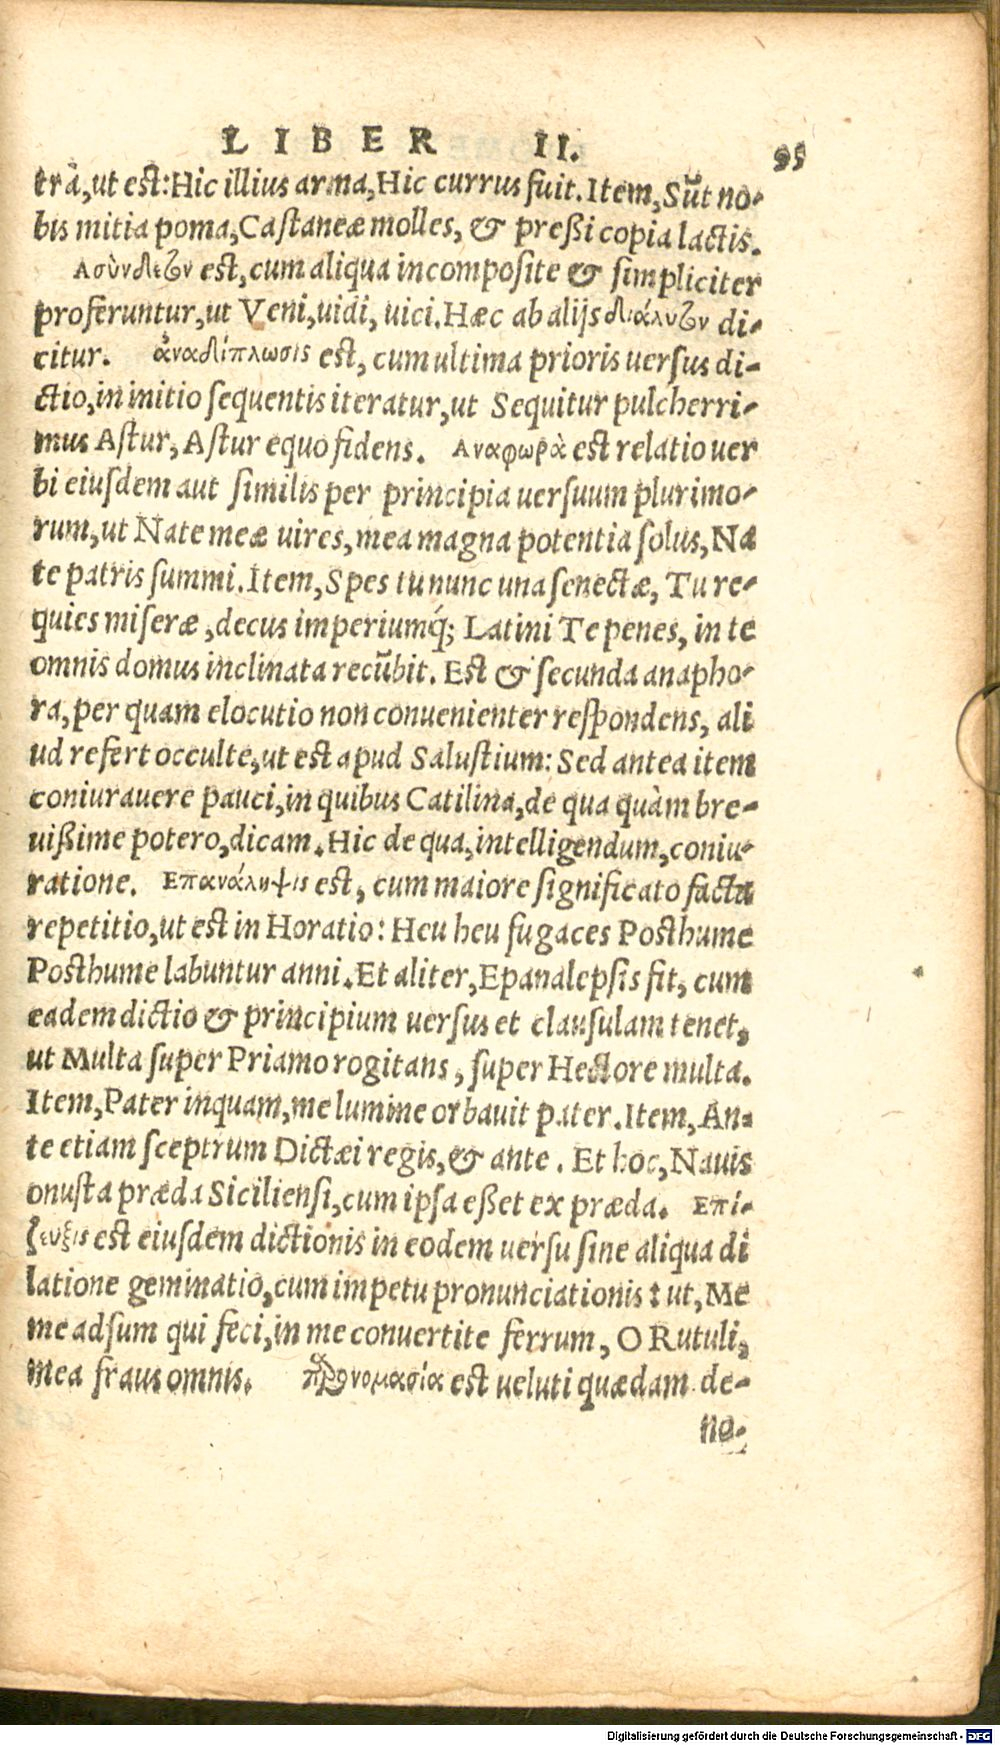 LIBER II. 95
trā, ut est: Hic illius arma, Hic currus fuit. Item, Sūt no-
bis mitia poma, Castaneæ molles, & preßi copia lactis.
Ασύνδετον est, cum aliqua incomposite & simpliciter
proferuntur, ut Veni, uidi, uici. Hæc ab alijs διάλυτον di-
citur. ἀναδίπλωσις est, cum ultima prioris uersus di-
ctio, in initio sequentis iteratur, ut Sequitur pulcherri-
mus Astur, Astur equo fidens. Αναφωρὰ est relatio uer
bi eiusdem aut similis per principia uersuum plurimo-
rum, ut Nate meæ uires, mea magna potentia solus, Na
te patris summi. Item, Spes tu nunc una senectæ, Tu re-
quies miseræ, decus imperiumq́; Latini Te penes, in te
omnis domus inclinata recūbit. Est & secunda anapho-
ra, per quam elocutio non conuenienter respondens, ali
ud refert occulte, ut est apud Salustium: Sed antea item
coniurauere pauci, in quibus Catilina, de qua quàm bre-
uißime potero, dicam. Hic de qua, intelligendum, coniu-
ratione. Επανάληψις est, cum maiore significato facta
repetitio, ut est in Horatio: Heu heu fugaces Posthume
Posthume labuntur anni. Et aliter, Epanalepsis fit, cum
eadem dictio & principium uersus et clausulam tenet,
ut Multa super Priamo rogitans, super Hectore multa.
Item, Pater inquam, me lumine orbauit pater. Item, An-
te etiam sceptrum Dictæi regis, & ante. Et hoc, Nauis
onusta præda Siciliensi, cum ipsa eßet ex præda. Επί-
ζευξις est eiusdem dictionis in eodem uersu sine aliqua di
latione geminatio, cum impetu pronunciationis: ut, Me
me adsum qui feci, in me conuertite ferrum, O Rutuli,
mea fraus omnis. παρονομασία est ueluti quædam de-
no-
Digitalisierung gefördert durch die Deutsche Forschungsgemeinschaft - DFG